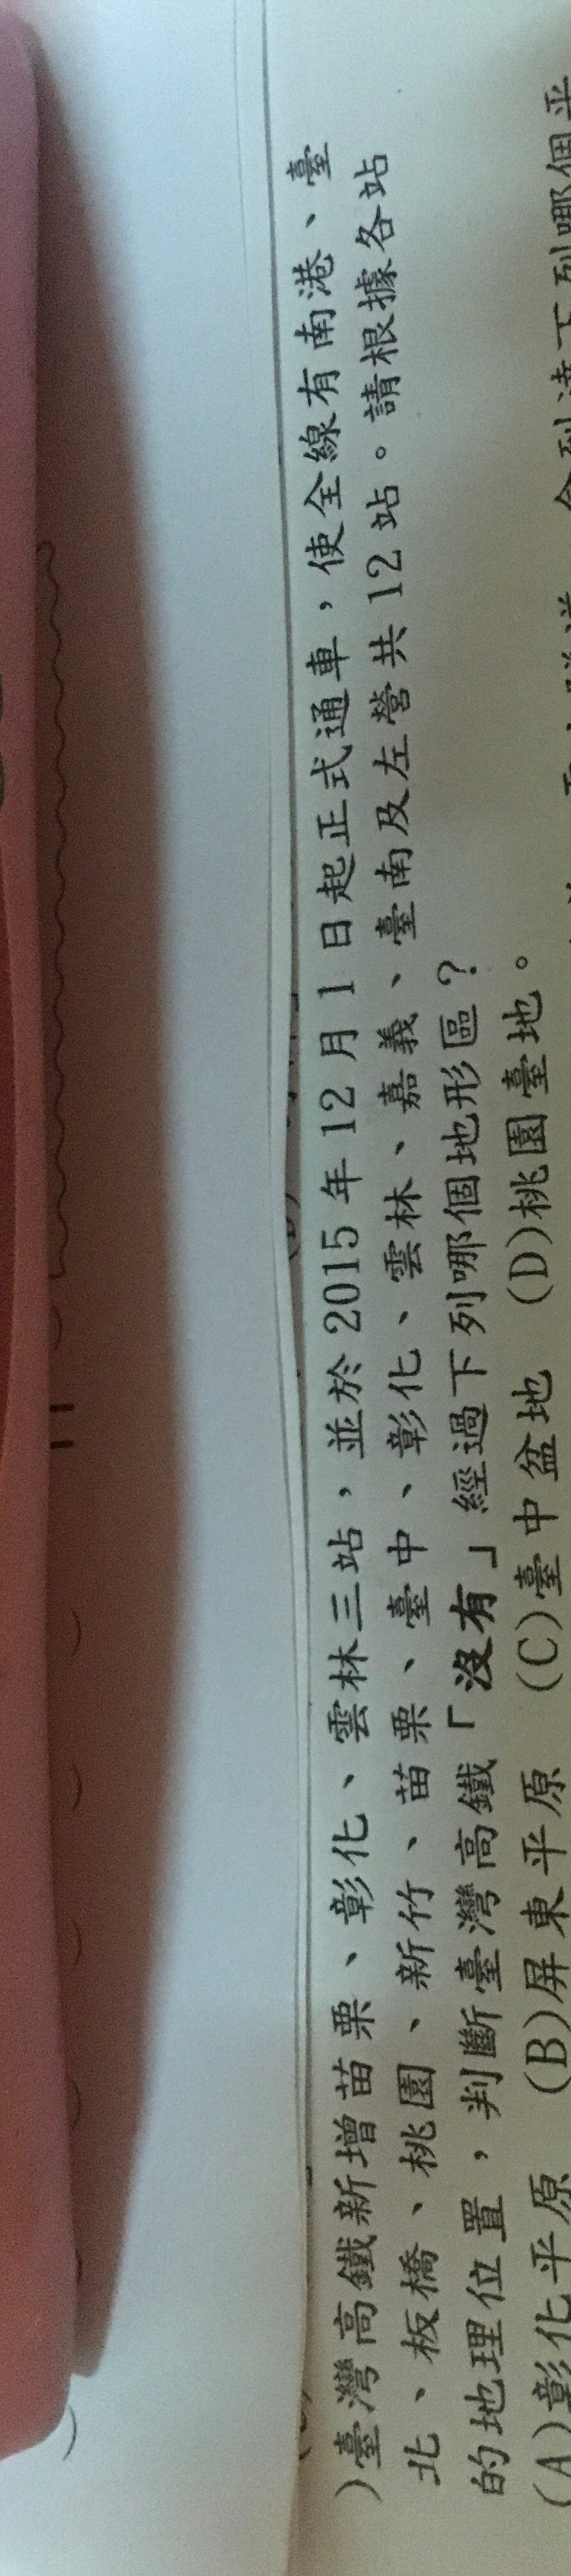 )臺灣高鐵新增苗栗、彰化、雲林三站，並於2015年12月1日起正式通車，使全線有南港、臺
北、板橋、桃園、新竹、苗栗、臺中、彰化、雲林、嘉義、臺南及左營共12站。請根據各站
的地理位置，判斷臺灣高鐵「沒有」經過下列哪個地形區？
(A)彰化平原 (B)屏東平原 (C)臺中盆地 (D)桃園臺地。
下列哪個平